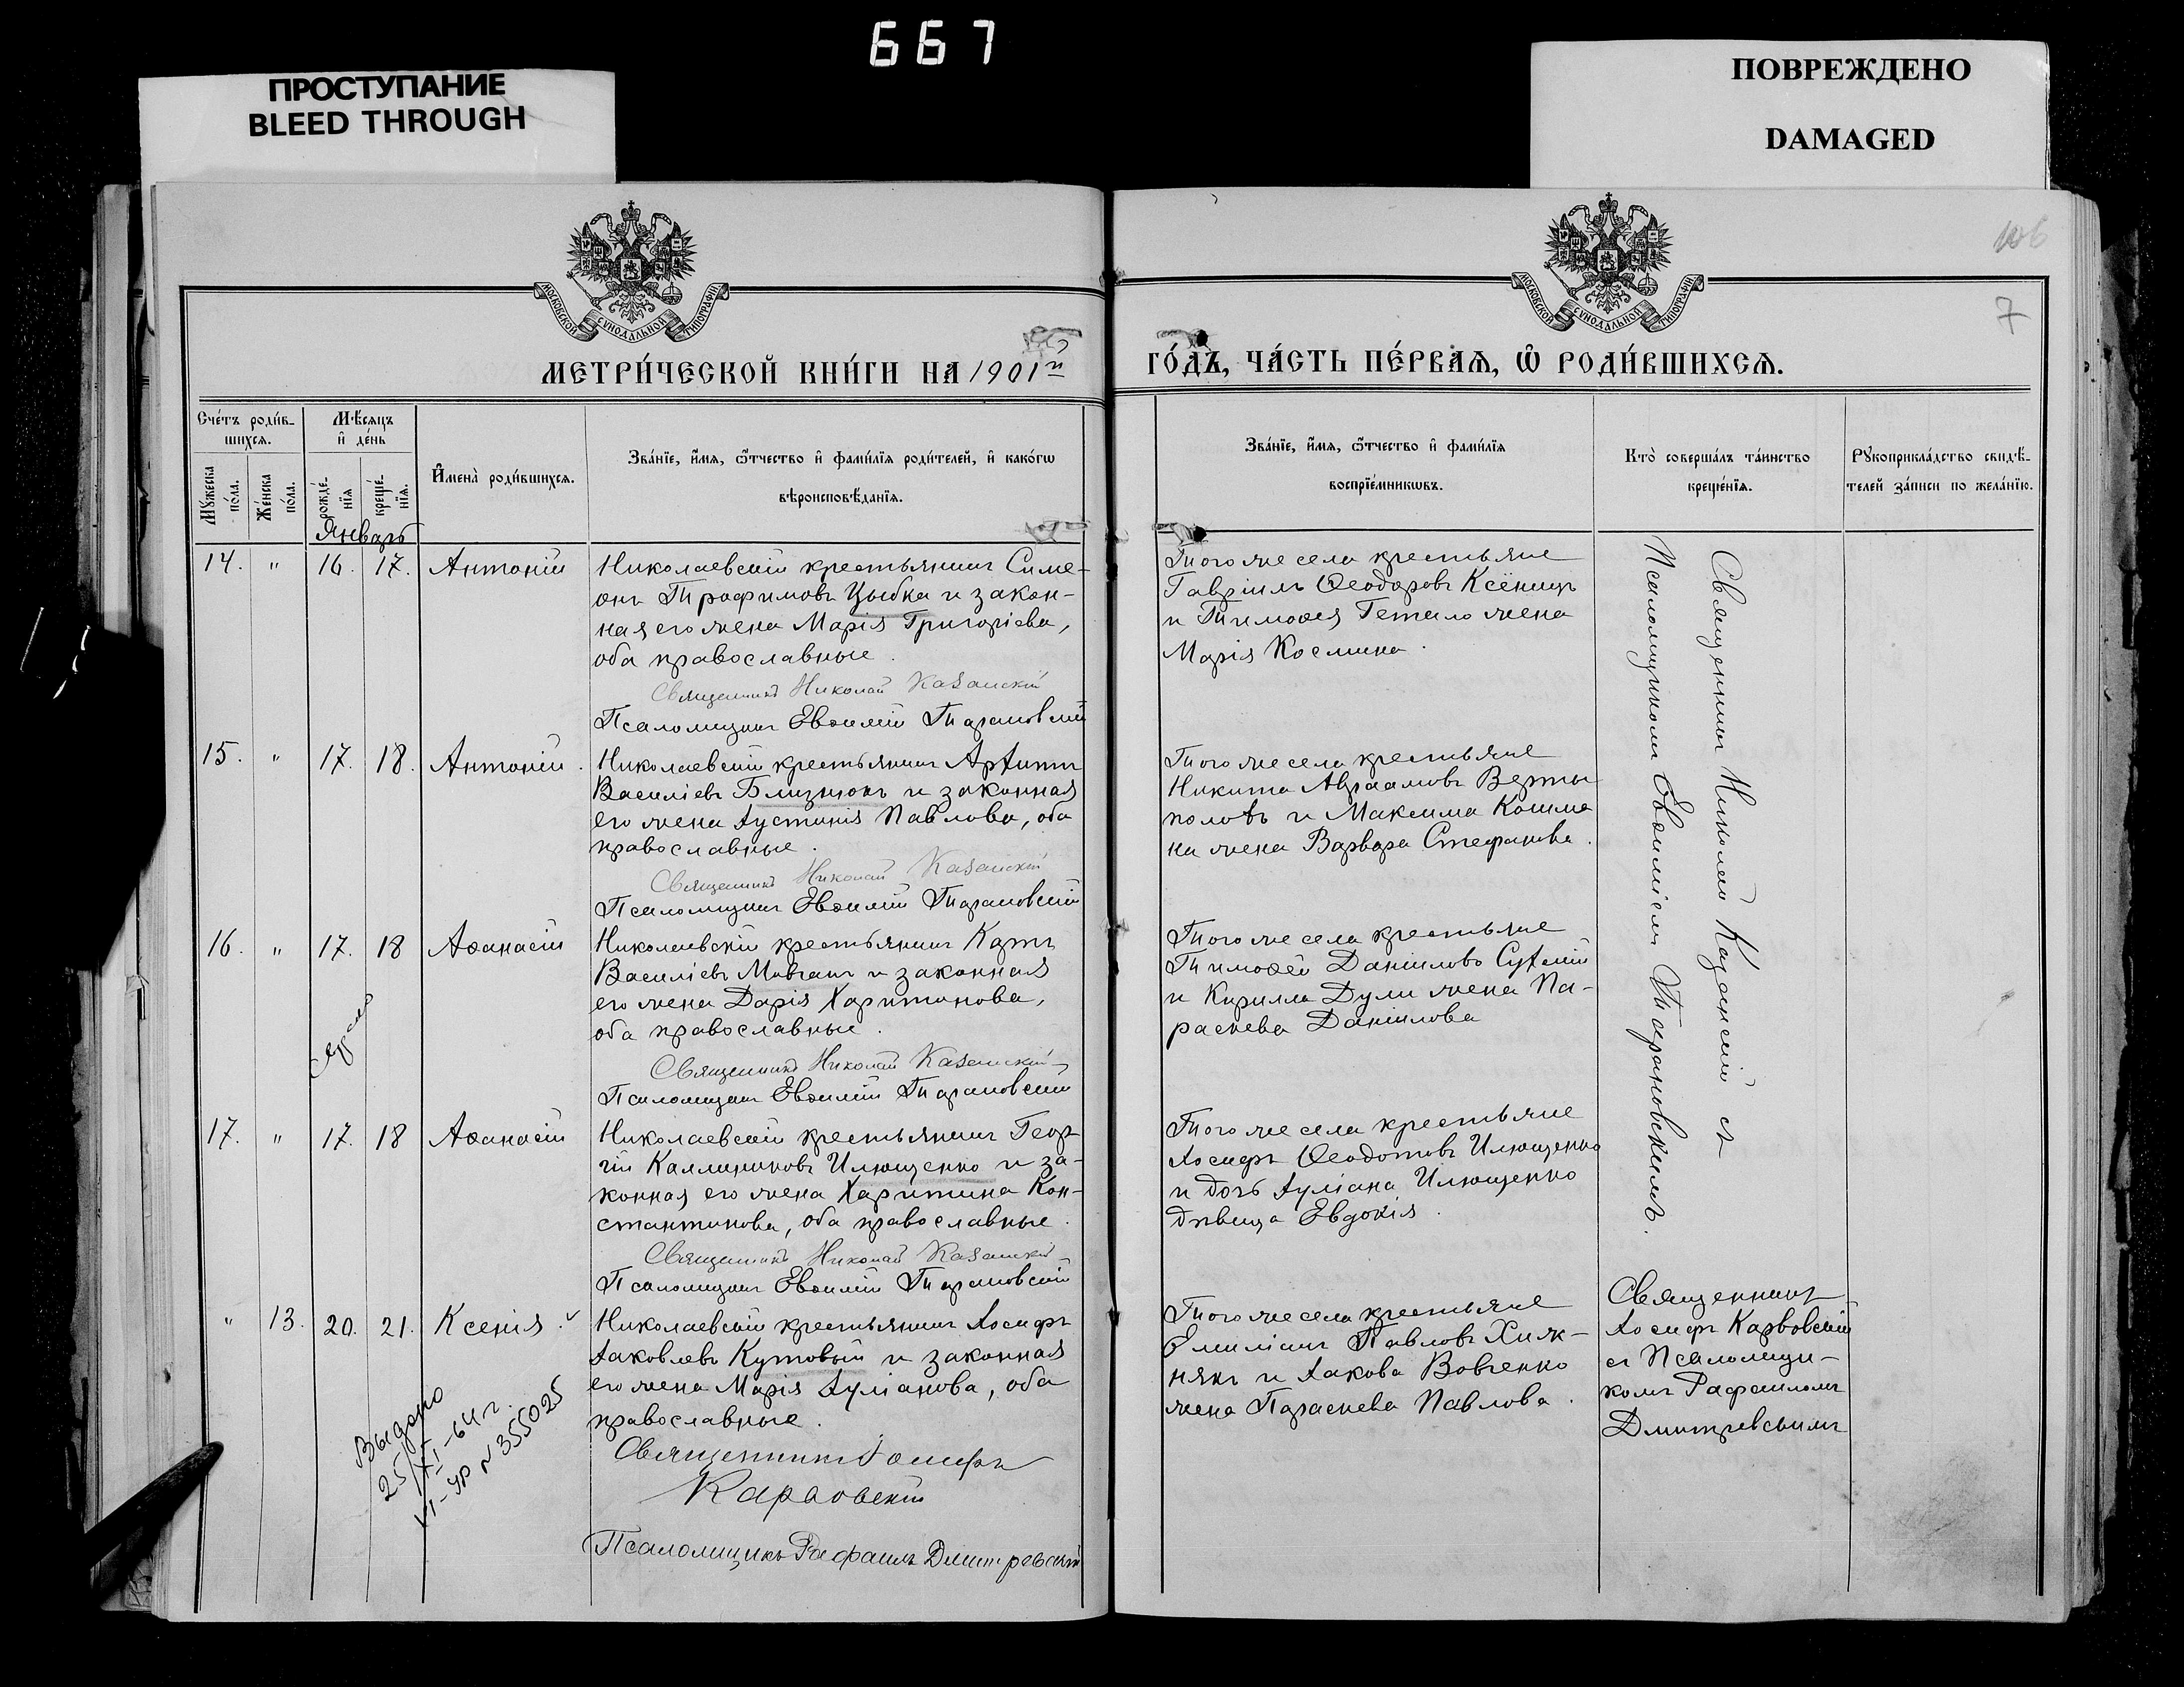 667
ПРОСТУПАНИЕ
BLEED THROUGH
ПОВРЕЖДЕНО
DAMAGED
106
7
МОСКОВСКОЙ СУНОДАЛЬНОЙ ТИПОГРАФІИ
МОСКОВСКОЙ СУНОДАЛЬНОЙ ТИПОГРАФІИ
МЕТРИ́ЧЕСКОЙ КНИ́ГИ НА 1901й
ГО́ДЪ, ЧА́СТЬ ПЕ́РВАѦ, Ѽ РОДИ́ВШИХСѦ.
Сче́тъ роди́в-
шихсѧ.
Мꙋ́жеска
по́ла.
Же́нска
по́ла.
Мѣ́сѧцъ
и҆ де́нь
рожде́-
нїѧ
креще́-
нїѧ.
И҆мена̀ роди́вшихсѧ.
Зва́нїе, и҆́мѧ, ѻ҆́тчество и҆ фами́лїѧ роди́телей, и҆ како́гѡ
вѣроисповѣ́данїѧ.
Зва́нїе, и҆́мѧ, ѻ҆́тчество и҆ фами́лїѧ
воспрїе́мникѡвъ.
Кто̀ соверша́лъ та́инство
креще́нїѧ.
Рꙋкоприкла́дство свидѣ́-
телей за́писи по жела́нїю.
Январь
14. " 16. 17. Антоній
Николаевскій крестьянинъ Симе-
онъ Трофимовъ Цыбка и закон-
ная его жена Марія Григоріева,
оба православные.
Священникъ Николай Казанскій
Псаломщикъ Евѳимій Тарановскій
Того же села крестьяне
Гавріилъ Ѳеодоровъ Ксёницъ
и Тимоѳея Гетало жена
Марія Космина.
15. " 17. 18. Антоній.
Николаевскій крестьянинъ Архипъ
Василіевъ Близнюкъ и законная
его жена Іустинія Павлова, оба
православные.
Священникъ Николай Казанскій
Псаломщикъ Евѳимій Тарановскій
Того же села крестьяне
Никита Авраамовъ Верты-
полохъ и Максима Кошма-
на жена Варвара Стефанова.
16. " 17. 18 Аѳанасій
Николаевскій крестьянинъ Карпъ
Василіевъ Мовчанъ и законная
его жена Дарія Харитонова,
оба православные.
Священникъ Николай Казанскій
Псаломщикъ Евѳимій Тарановскій
Того же села крестьяне
Тимоѳей Даніиловъ Сухлій
и Кирилла Дули жена Па-
раскева Даніилова
17. " 17. 18 Аѳанасій
Николаевскій крестьянинъ Геор-
гій Каллиниковъ Илющенко и за-
конная его жена Харитина Кон-
стантинова, оба православные.
Священникъ Николай Казанскій
Псаломщикъ Евѳимій Тарановскій
Того же села крестьяне
Іосифъ Ѳеодотовъ Илющенко
и дочь Іуліана Илющенко
дѣвица Евдокія.
Священникъ Николай Казанскій съ
Псаломщикомъ Евѳиміемъ Тарановскимъ.
" 13. 20. 21. Ксенія.
Николаевскій крестьянинъ Іосифъ
Іаковлевъ Кутовый и законная
его жена Марія Іуліанова, оба
православные.
Священникъ Іосифъ
Карвовскій
Псаломщикъ Рафаилъ Дмитревскій
Того же села крестьяне
Емиліанъ Павловъ Хиж-
някъ и Іакова Вовченко
жена Параскева Павлова.
Священникъ
Іосифъ Карвовскій
съ Псаломщи-
комъ Рафаиломъ
Дмитревскимъ
Выдано
25/XI-64 г.
VI-УР № 355025